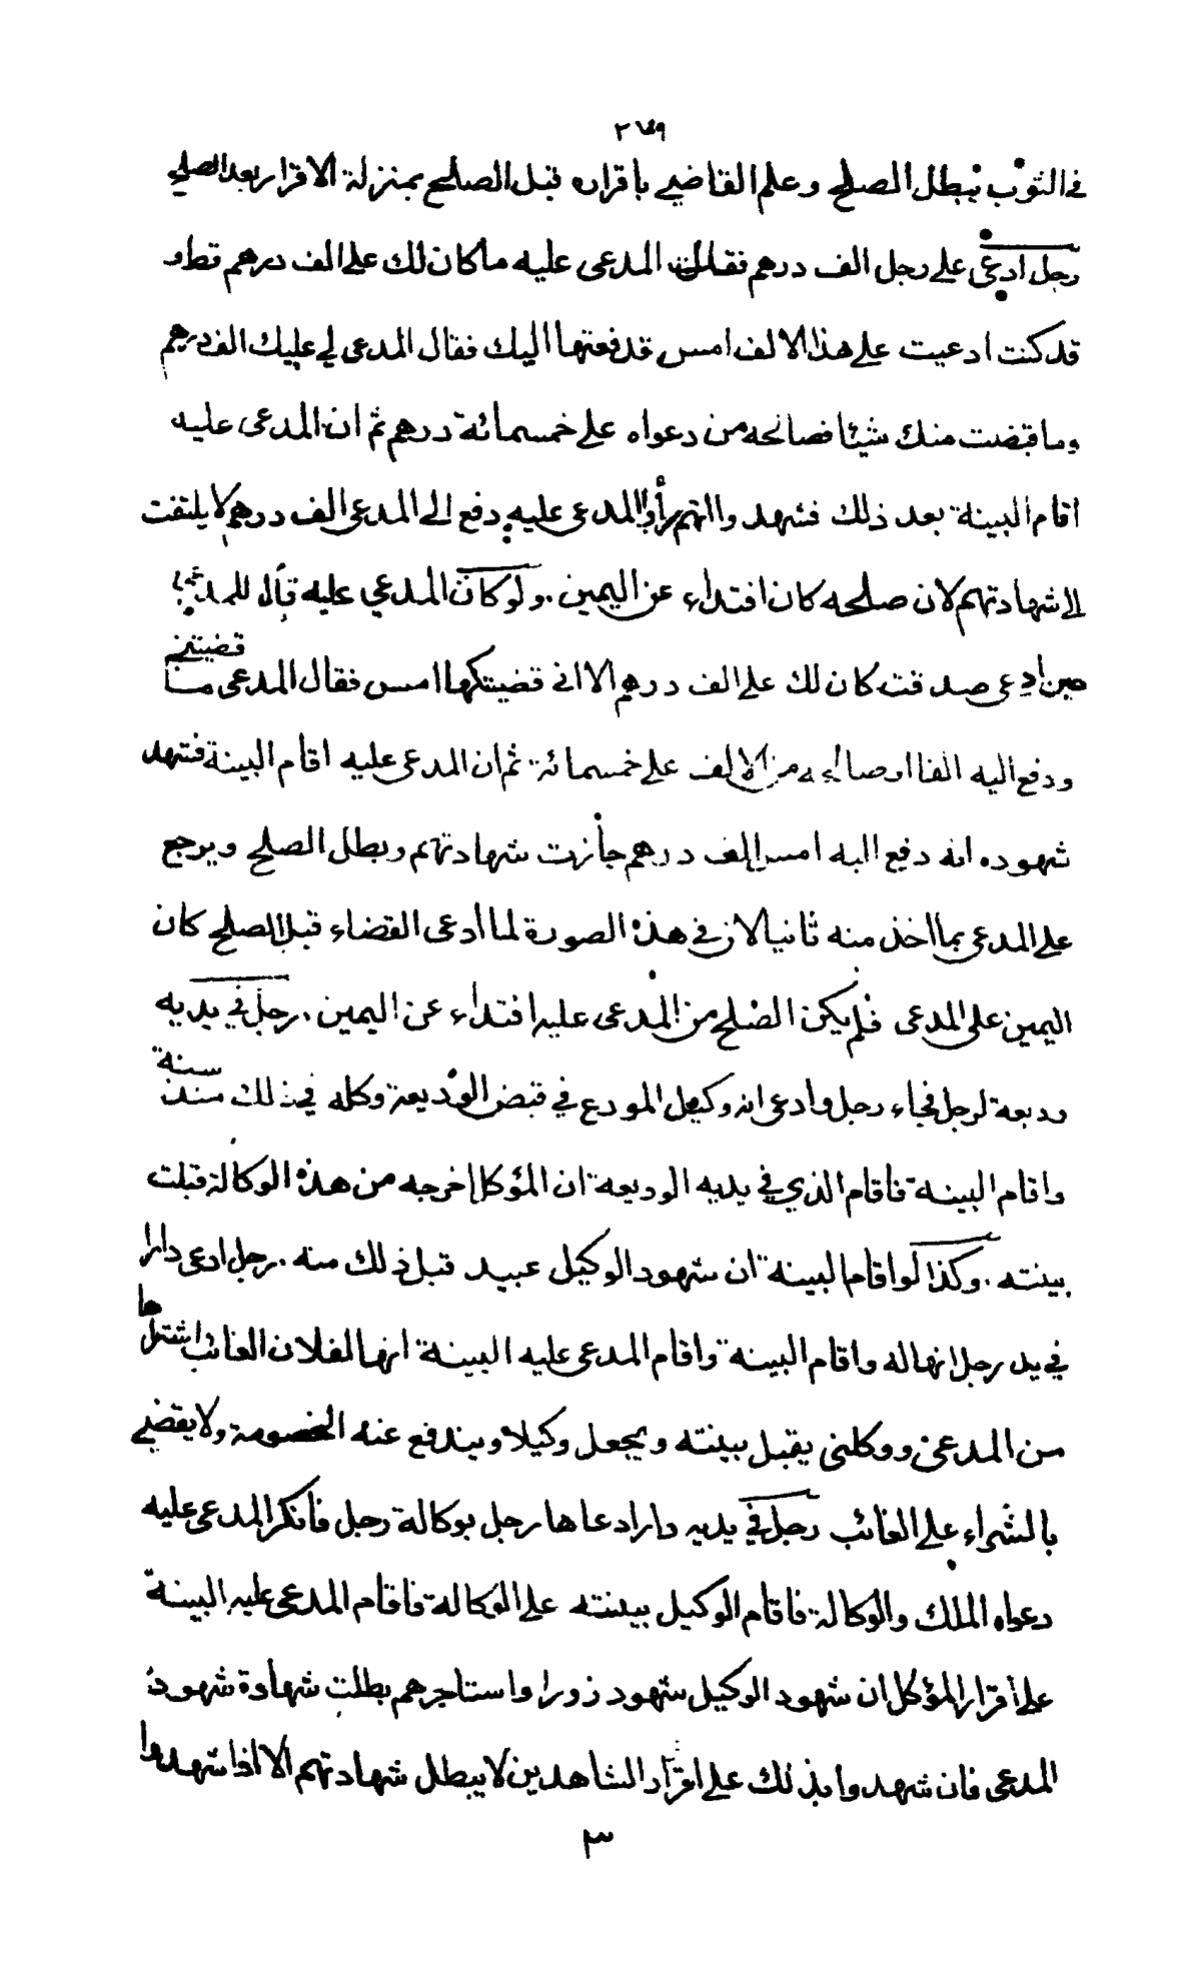 ٢٦٩
في الثوب يبطل الصلح وعلم القاضي باقراره قبل الصلح بمنزلة الاقرار بعد الصلح
رجل ادعى على رجل الف درهم فقال المدعى عليه ما كان لك على الف درهم قط و
قد كنت ادعيت على هذا الالف امس قد فعتها اليك فقال المدعى لي عليك الف درهم
وما قبضت منك شيئا فصالحه من دعواه على خمسمائة درهم ثم ان المدعى عليه
اقام البينة بعد ذلك فشهدوا انهم رأوا المدعى عليه دفع الى المدعى الف درهم لا يلتفت
الى شهادتهم لان صلحه كان افتداء عن اليمين . ولو كان المدعي عليه قال للمدعى
حين ادعى صدقت كان لك على الف درهم الا انى قضيتكها امس فقال المدعى ما قضيتنى
ودفع اليه الفا او صالحه من الالف على خمسمائة ثم ان المدعى عليه اقام البينة فشهد
شهوده انه دفع اليه امس الف درهم جازت شهادتهم وبطل الصلح ويرجع
على المدعى بما اخذ منه ثانيا لان في هذه الصورة لما ادعى القضاء قبل الصلح كان
اليمين على المدعى فلم يكن الصلح من المدعى عليه افتداء عن اليمين . رجل في يديه
وديعة لرجل فجاء رجل وادعى انه وكيل المودع في قبض الوديعة وكله في ذلك منذ سنة
واقام البينة فاقام الذي في يديه الوديعة ان المؤكل اخرجه من هذه الوكالة قبلت
بينته . وكذا لو اقام البينة ان شهود الوكيل عبيد قبل ذلك منه . رجل ادعى دارا
في يد رجل انها له واقام البينة واقام المدعى عليه البينة انها لفلان الغائب اشتراها
من المدعى ووكلنى يقبل بينته ويجعل وكيلا ويندفع عنه الخصومة ولا يقضي
بالشراء على الغائب رجل في يديه دار ادعاها رجل بوكالة رجل فأنكر المدعى عليه
دعواه الملك والوكالة فاقام الوكيل بينته على الوكالة فاقام المدعى عليه البينة
على اقرار المؤكل ان شهود الوكيل شهود زور او استاجرهم بطلت شهادة شهود
المدعى فان شهدوا بذلك على اقرار الشاهدين لا يبطل شهادتهم الا اذا شهدوا
٣